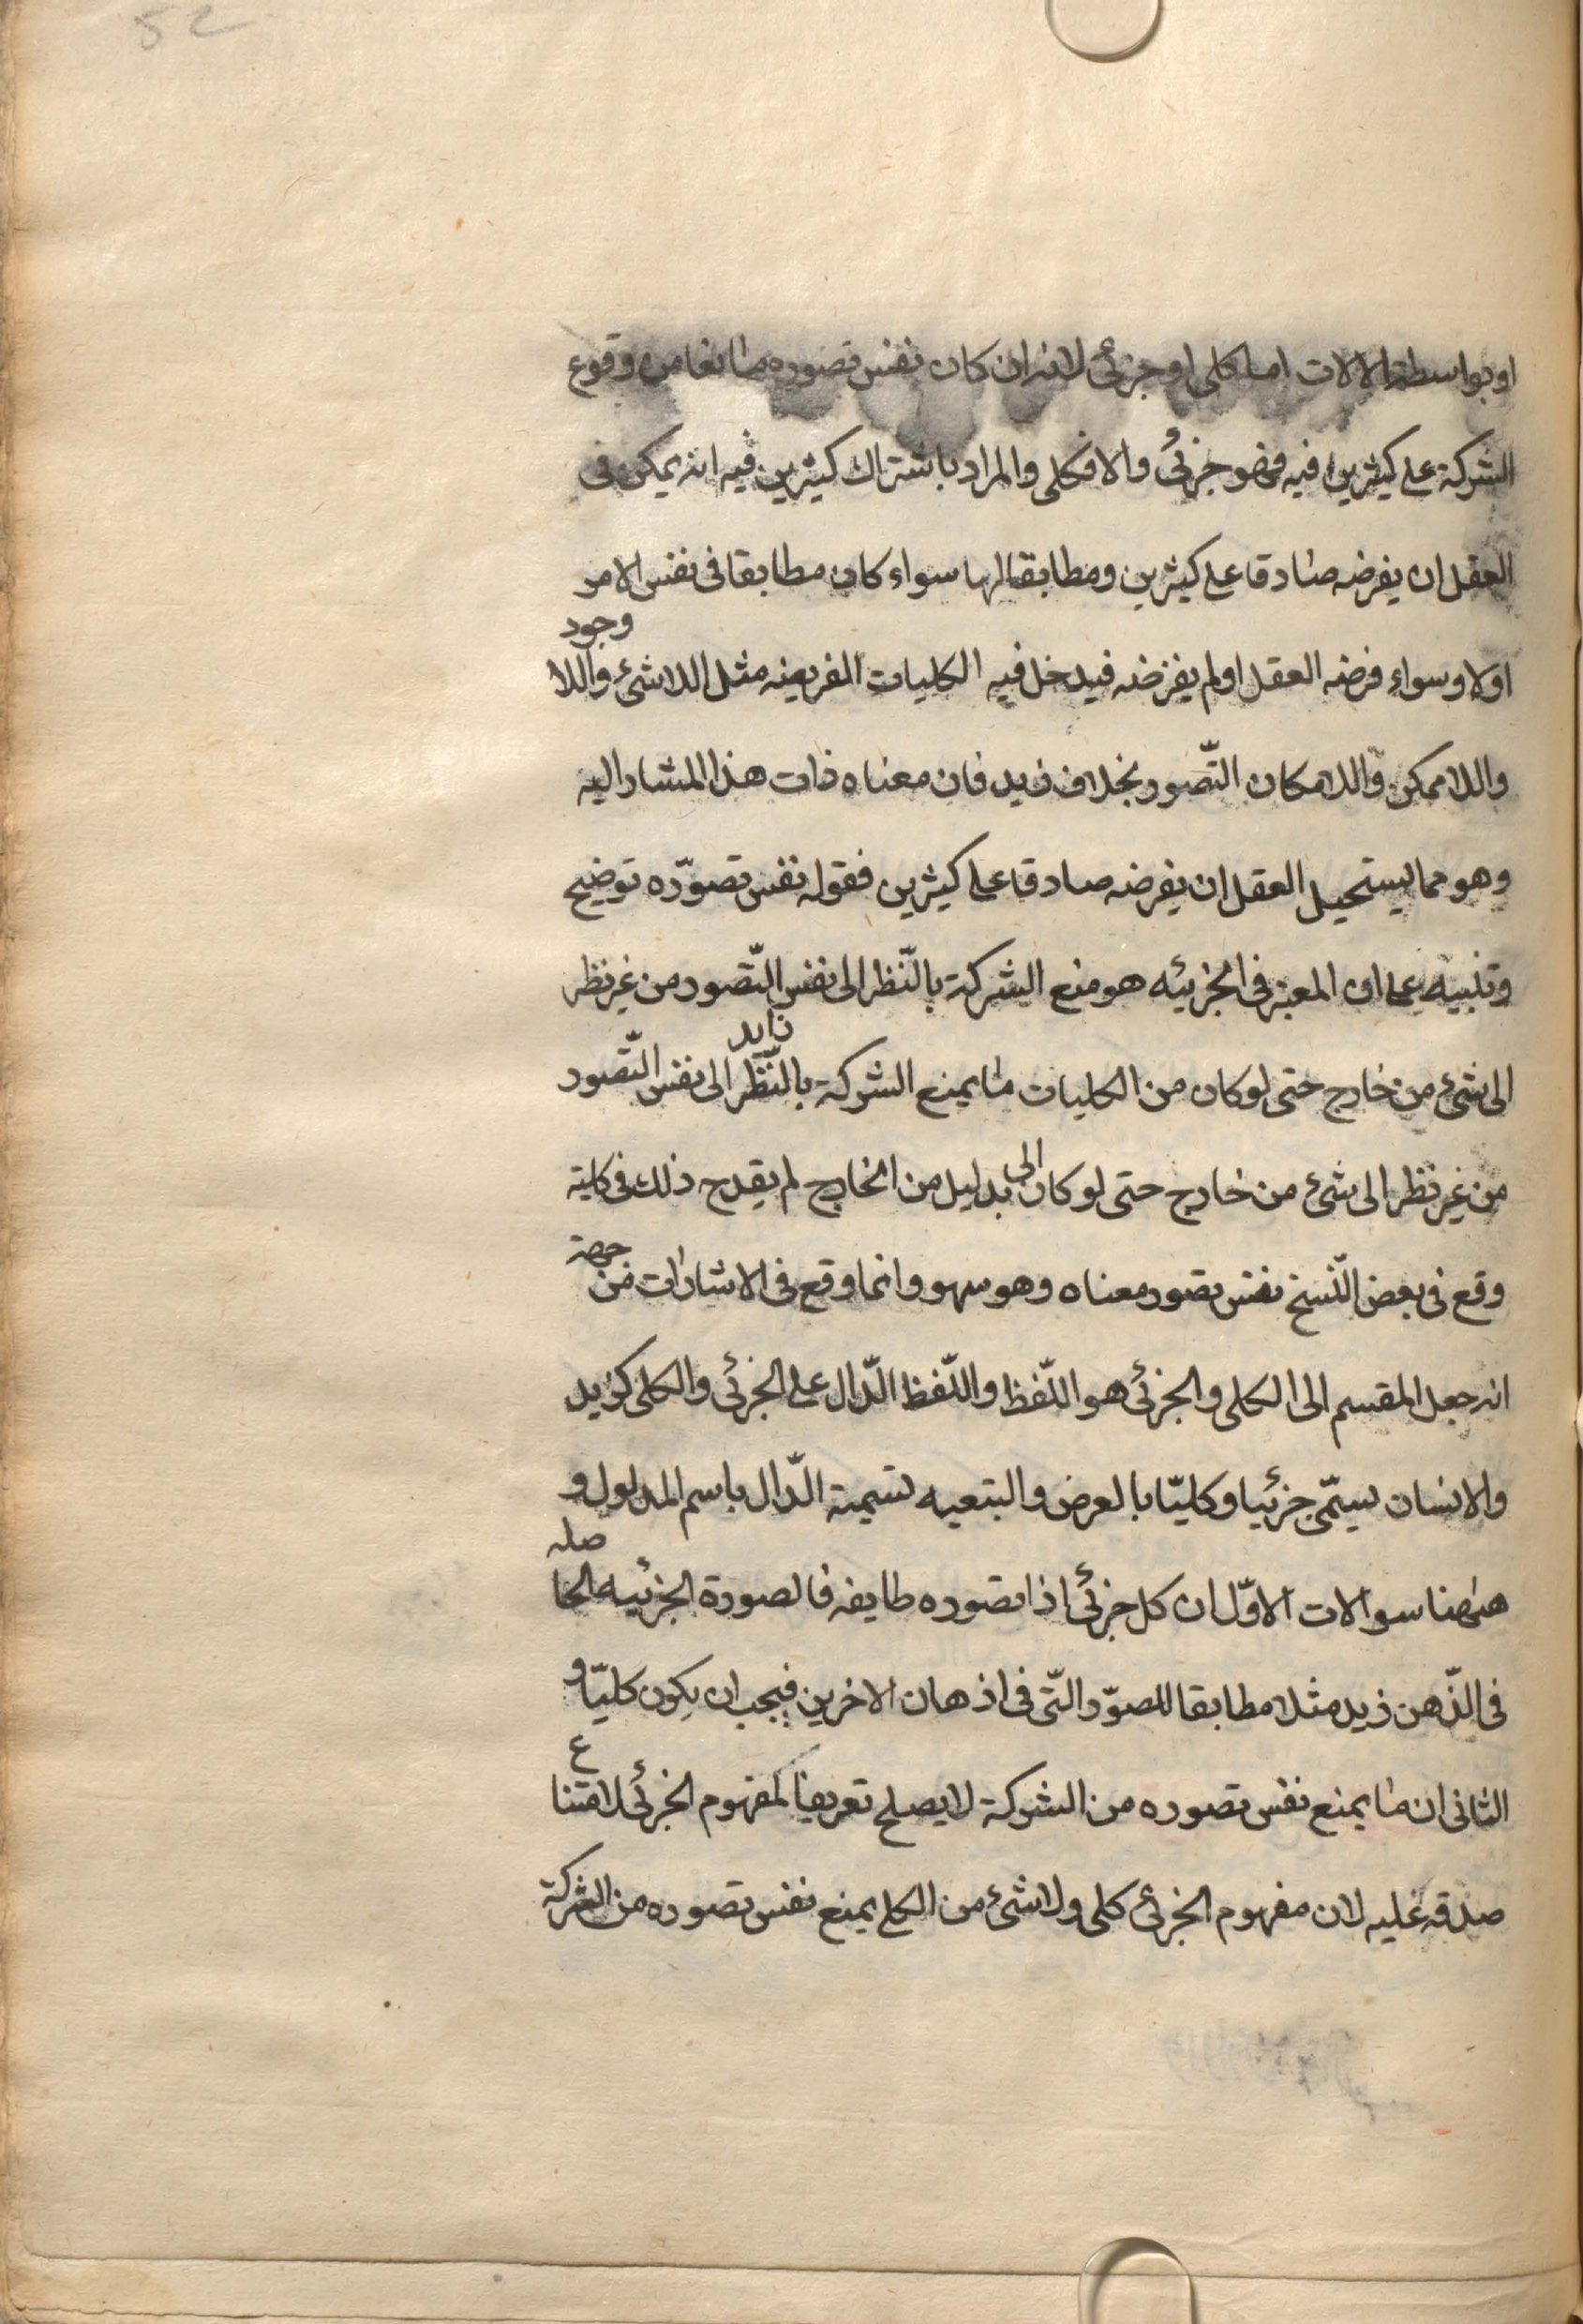 52
او بواسطة الالات اما كلى او جزئى لانه ان كان نفس تصوره مانعا من وقوع
الشركة على كثيرين فيه فهو جزئى والا فكلى والمراد باشتراك كثيرين فيه انه يمكن فى
العقل ان يفرضه صادقا على كثيرين ومطابقا لها سواء كان مطابقا فى نفس الامر
اولا وسواء فرضه العقل او لم يفرضه فيدخل فيه الكليات الفريضه مثل اللاشئ واللا وجود
واللاممكن واللامكان التّصور بخلاف زيد فان معناه ذات هذا المشار اليه
وهو مما يستحيل العقل ان يفرضه صادقا على كثيرين فقوله نفس تصوّره توضيح
وتنبيه على ان المعتبر فى الجزئيه هو منع الشركة بالنّظر الى نفس التّصور من غير نظر
الى شئ من خارج حتى لو كان من الكليات ما يمنع الشركة بالنّظر زايد الى نفس التّصور
من غير نظر الى شئ من خارج حتى لو كان الى بدليل من الخارج لم يقدح ذلك فى كليته
وقع فى بعض النّسخ نفس تصور معناه وهو سهو وانما وقع فى الاشارات من جهة
انه جعل المقسم الى الكلى والجزئى هو اللّفظ واللّفظ الدّال على الجزئى والكلى كزيد
والانسان يسمّى جزئيا وكليّا بالعرض والتبعيه تسمية الدّال باسم المدلول و
هٰهنا سوالات الاوّل ان كل جزئى اذا تصوره طايفه فالصورة الجزئيه الحا صله
فى الذّهن زيد مثلا مطابقا للصوّر التّى فى اذهان الاخرين فيجب ان يكون كليّا و
الثانى ان ما يمنع نفس تصوره من الشركة لا يصلح تعريفا لمفهوم الجزئى لامتنا ع
صدقه عليه لان مفهوم الجزئى كلى ولا شئ من الكلى يمنع نفس تصوره من الشركة